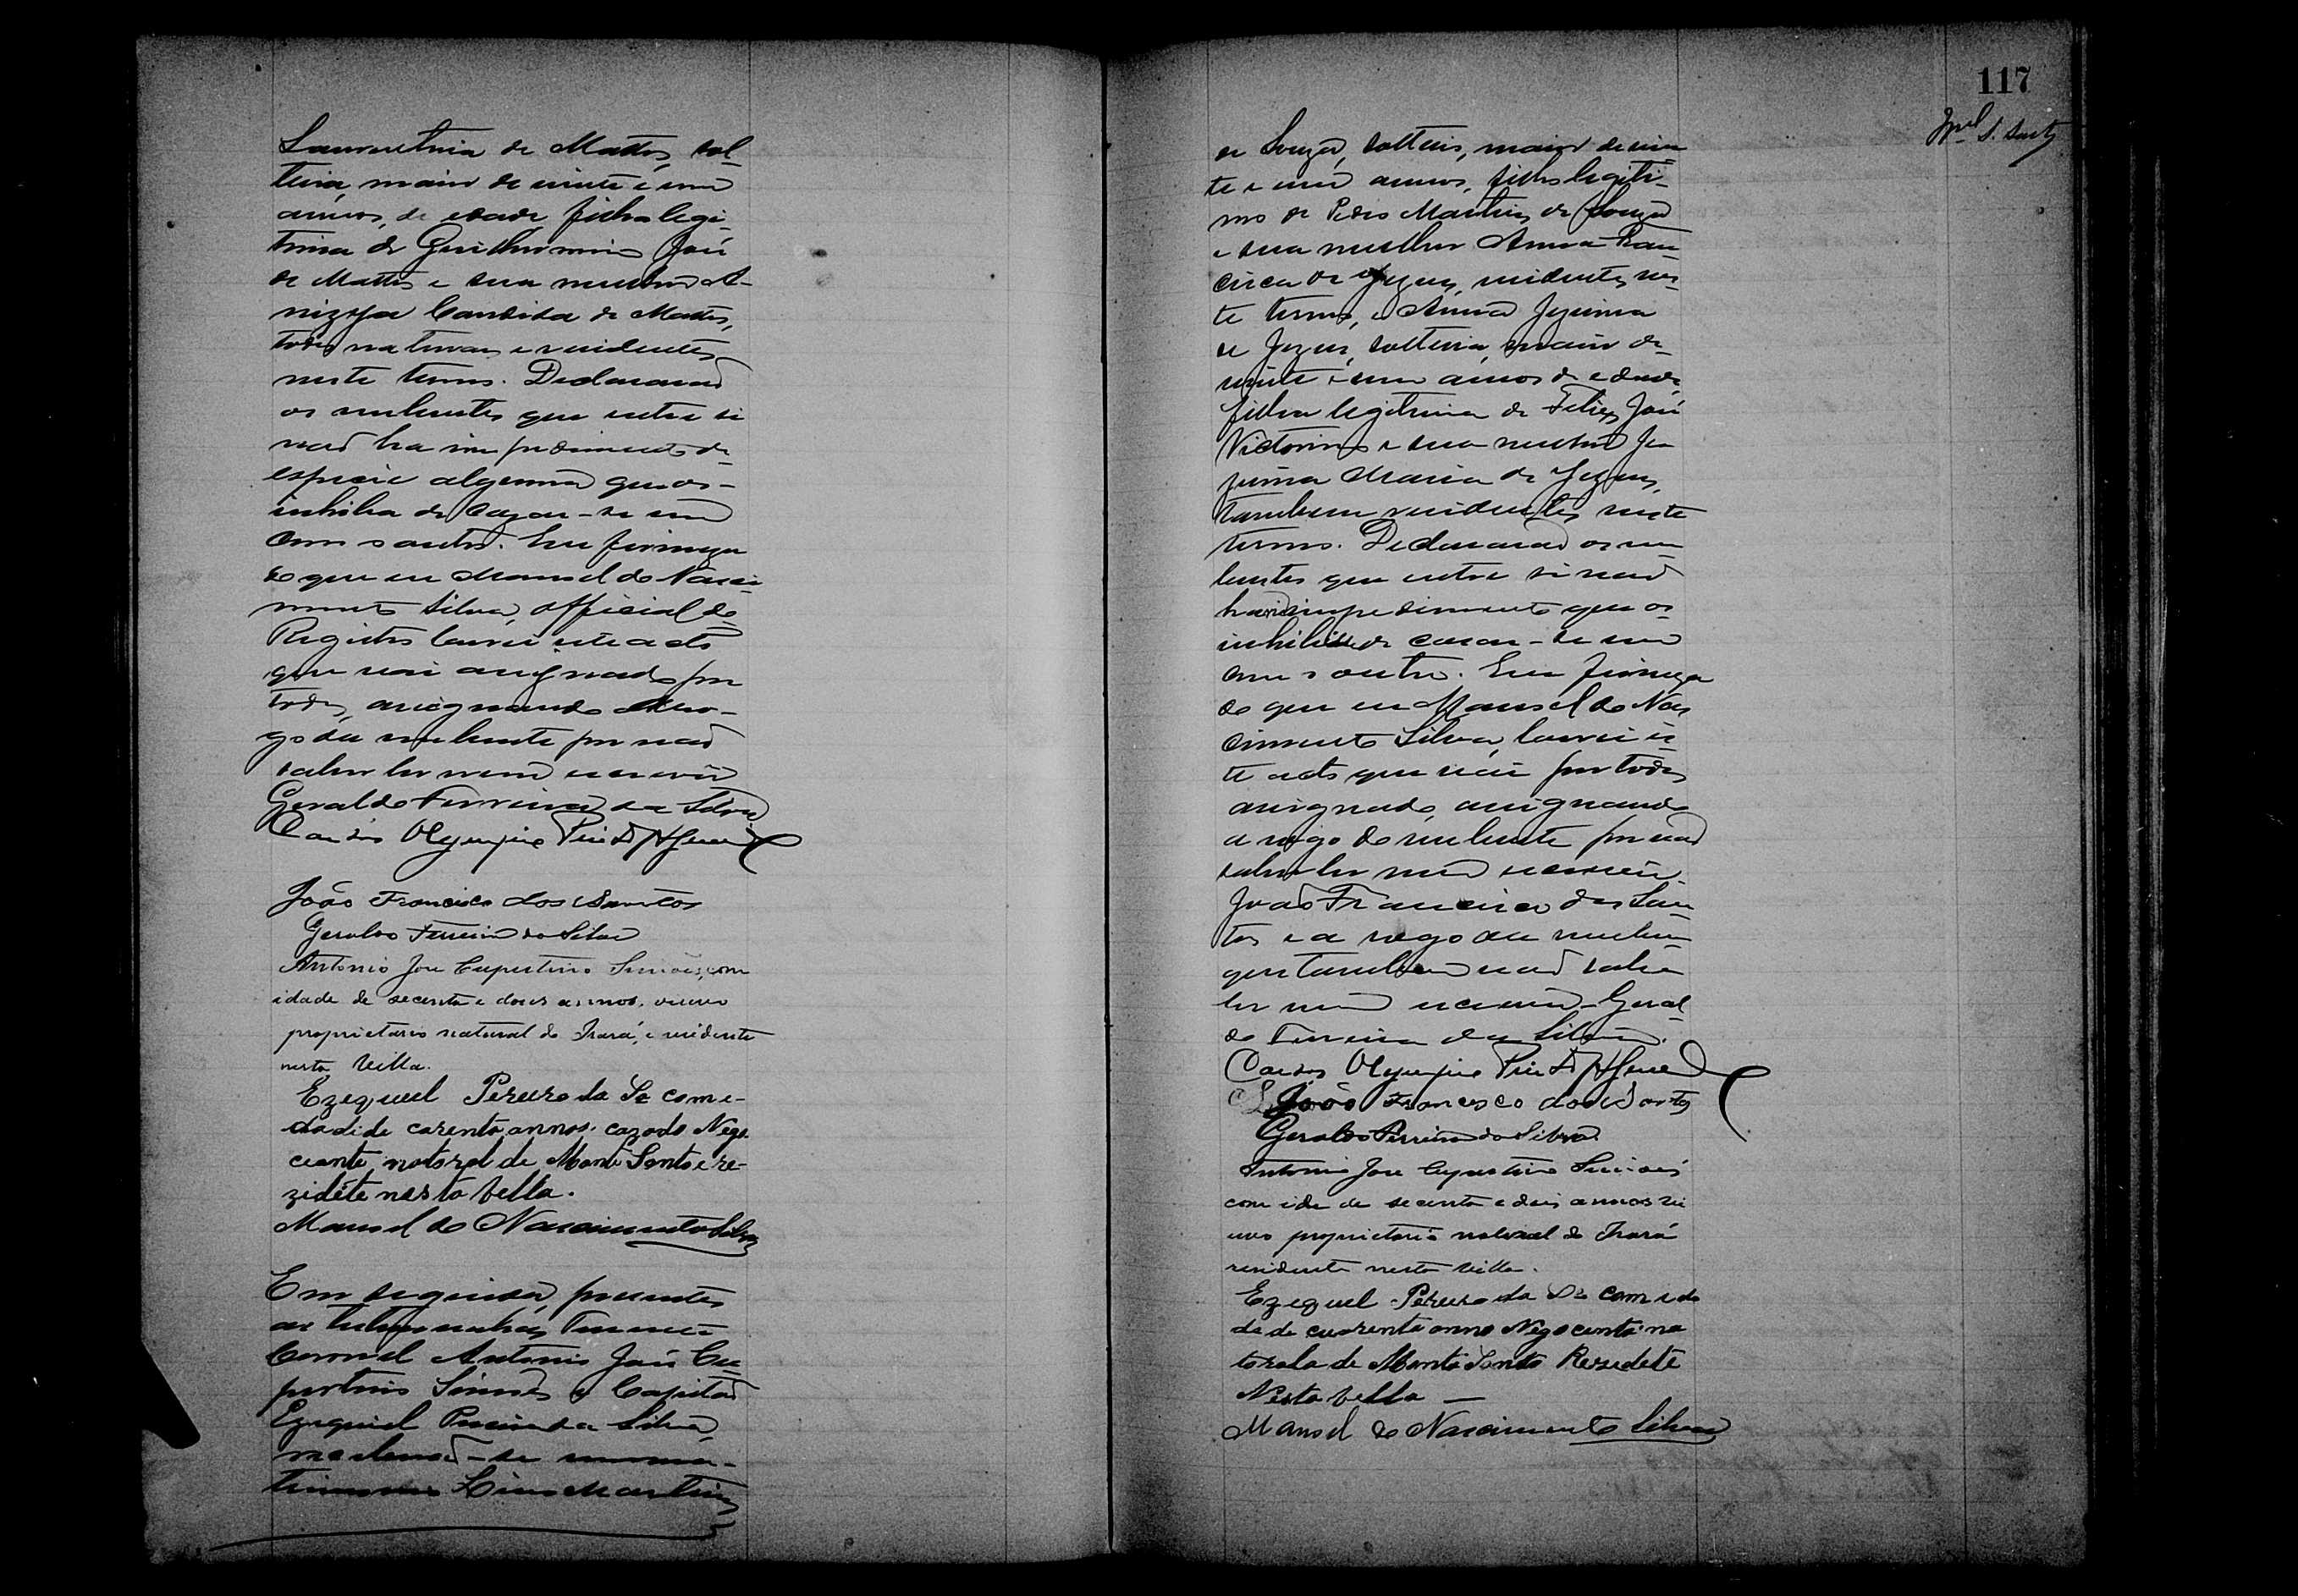 de Mattos, sol-
teira, maior de vinte e um
annos, de edade filha legi-
tima de Guilhermino José
de Mattos e sua mulher A-
Candida de Mattos,
todos naturaes e residentes
neste termo. Declararaõ
os nubentes que entre si
naõ ha impedimento de
especie alguma que os
inhiba de cazar-se um
com o outro. Em firmeza
do que eu Manoel do Nasci-
mento Silva, official do
Registro lavrei este acto
que vai assignado por
todos, assignando a ro-
go da nubente por naõ
saber ler nem escrever
Geraldo Ferreira da Silva
Olympio
João Francisco dos Santos
Geraldo Ferreira da Silva
Antonio Jose Cupertino Simões, com
idade de secenta e dous annos, viuvo
proprietario natural do Irará, e residente
nesta Villa.
Ezequiel Pereira da Sa com e-
dadi de carenta annos, cazado Nego-
ceante, natoral de Monte Santo e re-
zidête nesta vella.
Manoel do Nascimento Silva
Em seguida, presentes
as testemunhas, Tenente
Coronel Antonio José Cu-
pertino Simões e Capitaõ
Ezequiel Pereira da Silva,
Martins
117
de Souza, solteiro, maior de vin-
te e um annos, filho legiti-
mo de Pedro Martins de Souza
e sua mulher Anna Fran-
cisca de Jezus, residentes nes-
te termo, e Anna
de Jezus, solteira, maior de
vinte e um annos de edade
filha legitima de Felix José
Victorino e sua mulher
Maria de Jezus,
tambem residentes neste
termo. Declararaõ os nu-
bentes que entre si naõ
havia impedimento que os
inhibisse de casar-se um
com o outro. Em firmeza
do que eu Manoel do Nas-
cimento Silva, lavrei es-
te acto que vai por todos
assignado, assignando
a rogo do nubente por naõ
saber ler nem escrever
Joaõ Francisco dos San-
tos e a rogo da nubente
que tambem naõ sabe
ler nem escrever Geral-
do Ferreira da Silva.
Olympio
João Francisco dos Santos
Geraldo Ferreira da Silva
Antonio Jose Cupertino Simões
com idade de secenta e dois annos vi-
uvo proprietario natural do Irará
residente nesta Villa.
Ezequel Pereira da Sa com eda
de de cuarenta anno Negocente na
torala de Monte Santo Rezedete
Nesta vella —
Manoel do Nascimento Silva